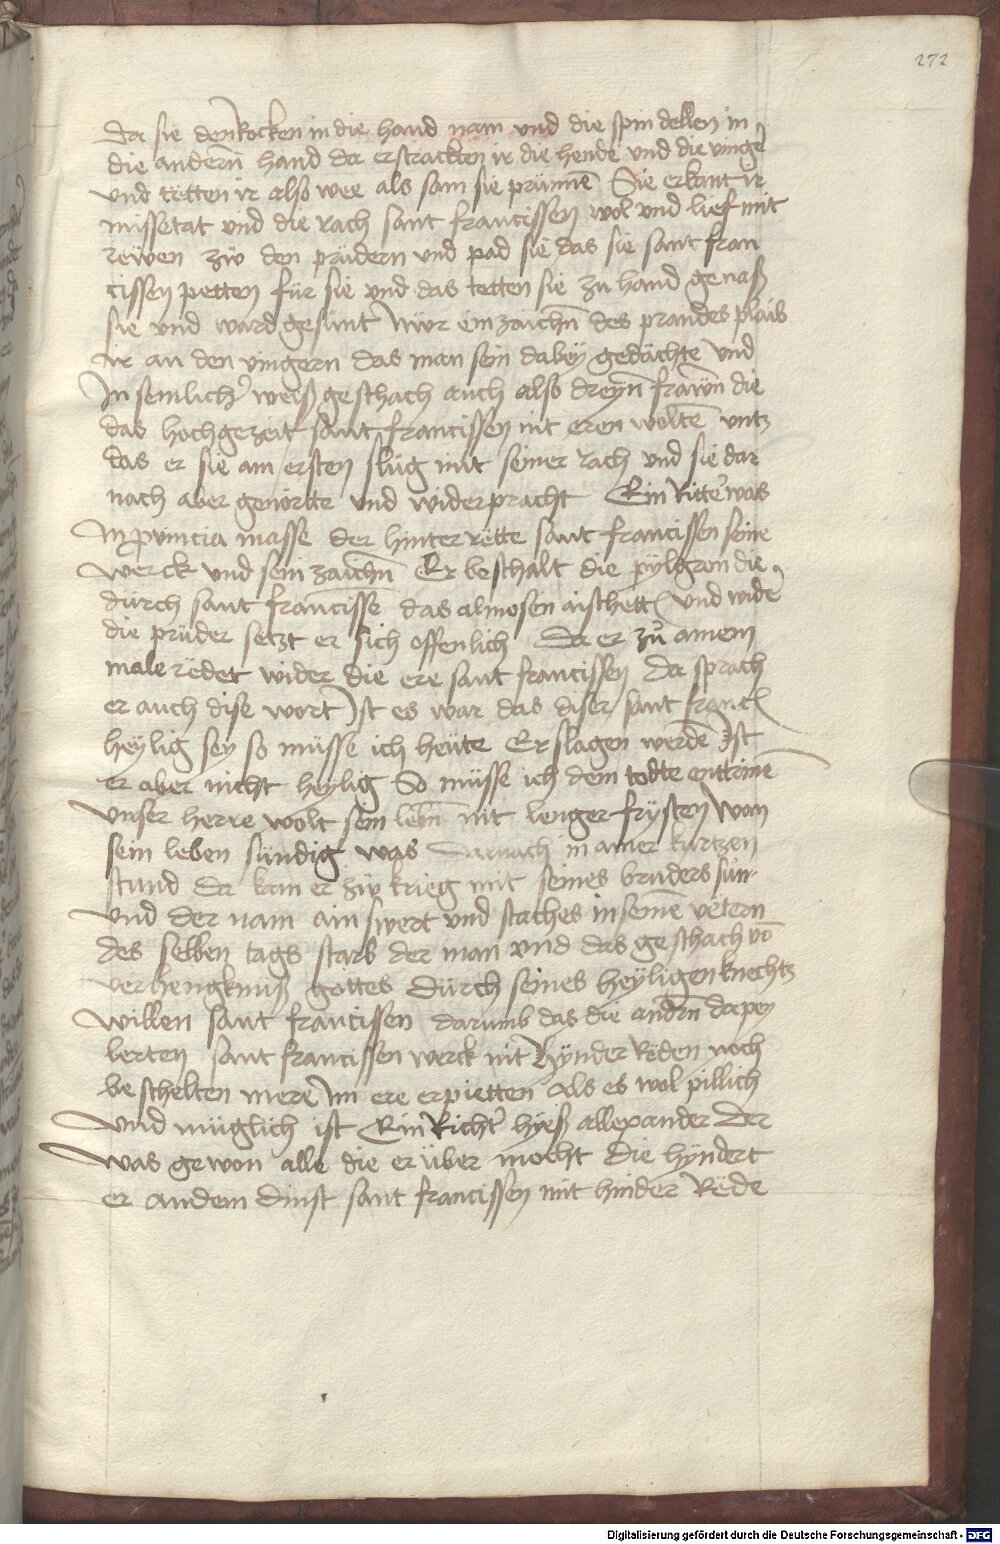 272
da sie den Rocken in die hand nam und die spin dellen in
die andern̄ hand da erstrackten ir die hende und die vinge
und tëtten ir also wee als sam sie prünnē Sie erkant ir
missetat und die rach sant francissen wol und lief mit
rëwen zw den prüdern und pad sie das sie sant fran
cissen petten für sie und das tetten sie zu hand genaß
sie und ward gesunt Nur ein zaichn̄ des prandes plaib
ir an den vingern das man sein dabey gedächte Und
In semlichr weiß geschach auch also dreyn̄ frawn̄ die
das hochgezeit sant francissen nit eren woltē untz
das er sie am ersten slüg mit seiner rach und sie dar
nach aber genörtte und widerpracht Ein Ritter was
In provincia masse der hinter rëtte sant francissen seine
werck und sein zaichn̄ Er beschalt die pylgren die
durch sant francissē das almosen aischetten und wider
die prüder setzt er sich offenlich Da er zů amem
male rëdet wider die ere sant francissen Da sprach
er auch dise wort Ist es war das diser sant franc
heylig sey so müsse ich heüte Erslagen werdē Ist
er aber nicht heylig So müsse ich dem todte enttrinē
Unser herre wolt sein lebn̄ nit lenger frysten Wan
sein leben sündig was Darnach in ainer kurtzen
stund da kam er zw krieg mit seines bruders sun
Und der nam ain swert und staches in seinē vëtern
des selben tags starb der man und das geschach vō
verhengknuß gottes Durch seines heyligen knechtz
willen sant francissen darumb das die andrn̄ dapey
lerten sant francissen werck nit hynder Rëden noch
beschelten mere Im ere erpietten Als es wol pillich
Und müglich ist Ein Richtr hyeß allexander der
was gewon alle die er über mocht die hyndert
er an dem dinst sant francissen mit hinder Rëde
Digitalisierung gefördert durch die Deutsche Forschungsgemeinschaft - DFG